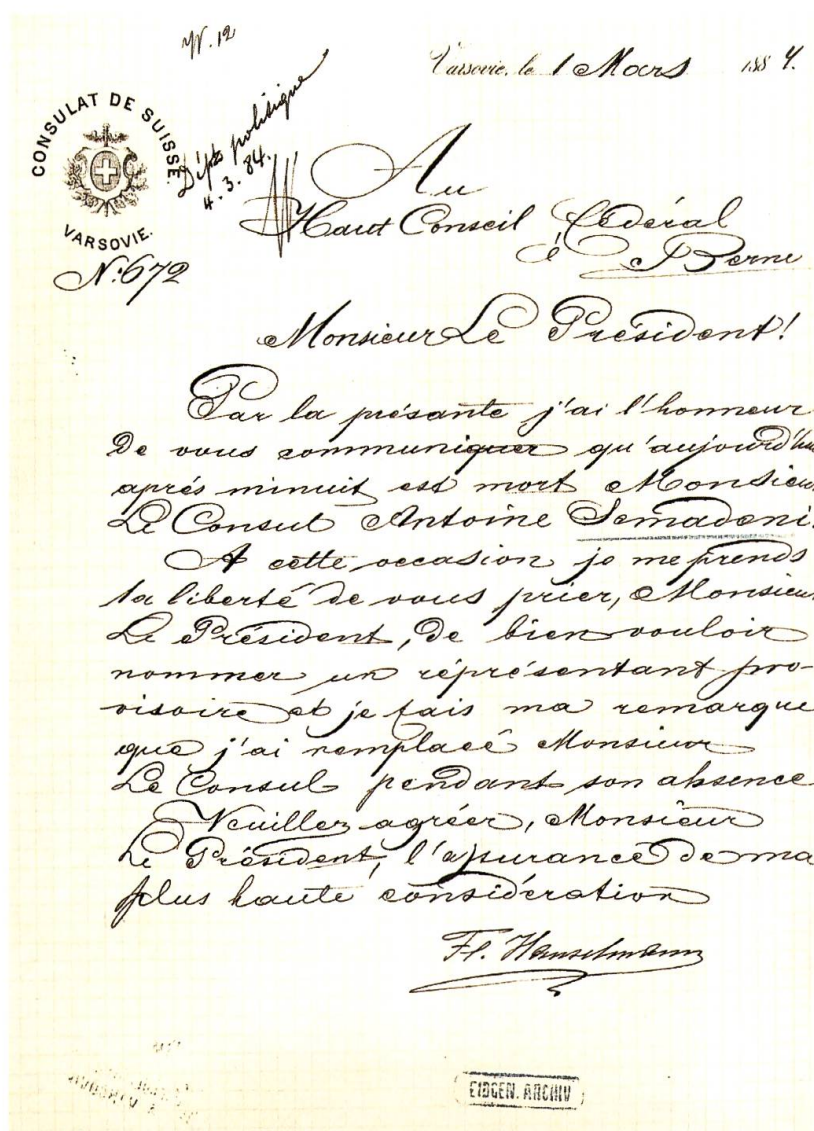 Varsovie, le 1 Mars 1884.
CONSULAT DE SUISSE.
VARSOVIE.
Dépt politique
4.3.84.
N:672
Au
Haut Conseil fédéral
à Berne
Monsieur Le Président!
Par la présante j'ai l'honneur
De vous communiquer qu'aujourd'hui
aprés minuit est mort Monsieur
Le Consul Antoine Semadeni.
A cette occasion je me prends
la liberté de vous prier, Monsieur
Le Président, De bien vouloir
nommer un réprésentant pro-
visoire et je fais ma remarque
que j'ai remplacé Monsieur
Le Consul pendant son absence
Veuillez agréer, Monsieur
Le Président, l'assurance De ma
plus haute considération
Fl. Hanselmann
EIDGEN. ARCHIV